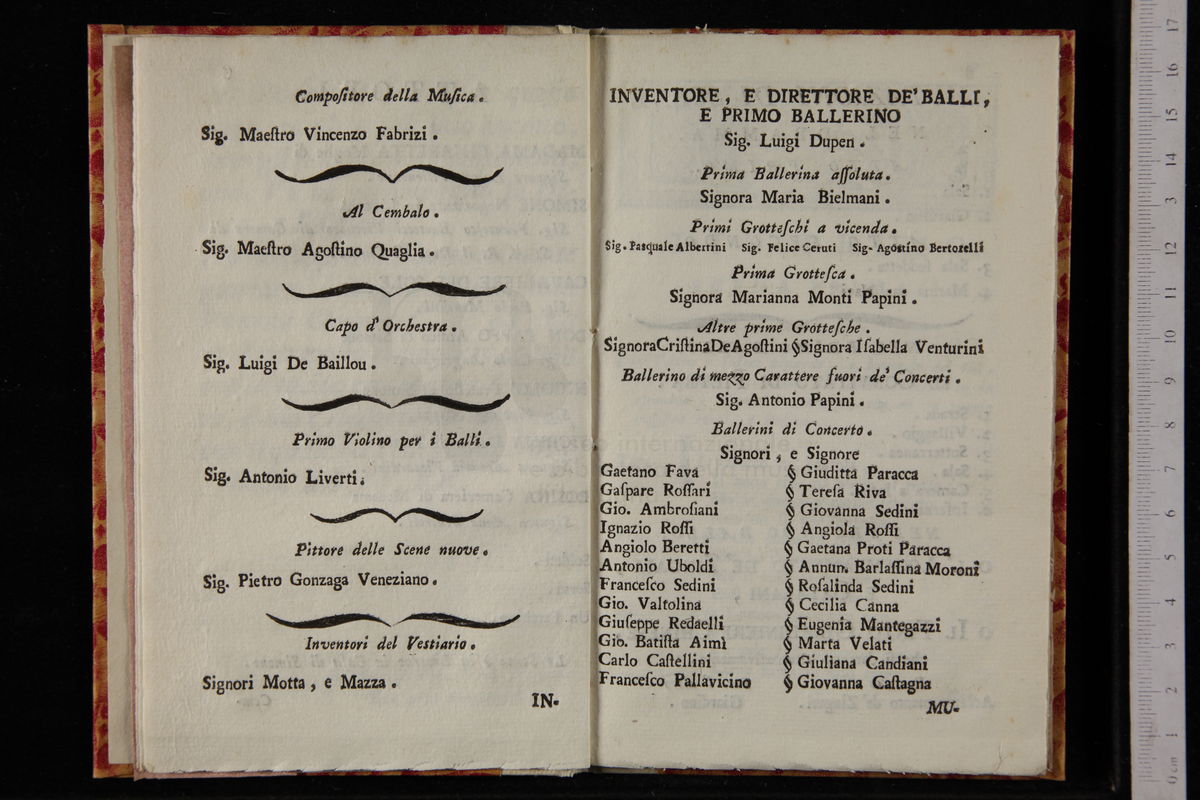 Compoſitore della Muſica.
Sig. Maeſtro Vincenzo Fabrizi.
Al Cembalo.
Sig. Maeſtro Agoſtino Quaglia.
Capo d'Orcheſtra.
Sig. Luigi De Baillou.
Primo Violino per i Balli.
Sig. Antonio Liverti.
Pittore delle Scene nuove.
Sig. Pietro Gonzaga Veneziano.
Inventori del Veſtiario.
Signori Motta, e Mazza.
IN-
INVENTORE, E DIRETTORE DE' BALLI,
E PRIMO BALLERINO
Sig. Luigi Dupen.
Prima Ballerina aſſoluta.
Signora Maria Bielmani.
Primi Grotteſchi a vicenda.
Sig. Pasquale Albertini Sig. Felice Ceruti Sig. Agostino Bertorelli
Prima Grotteſca.
Signora Marianna Monti Papini.
Altre prime Grotteſche.
Signora Criſtina De Agoſtini § Signora Iſabella Venturini
Ballerino di mezzo Carattere fuori de' Concerti.
Sig. Antonio Papini.
Ballerini di Concerto.
Signori, e Signore
Gaetano Fava § Giuditta Paracca
Gaſpare Roſſari § Tereſa Riva
Gio. Ambroſiani § Giovanna Sedini
Ignazio Roſſi § Angiola Roſſi
Angiolo Beretti § Gaetana Proti Paracca
Antonio Uboldi § Annun. Barlaſſina Moroni
Franceſco Sedini § Roſalinda Sedini
Gio. Valtolina § Cecilia Canna
Giuſeppe Redaelli § Eugenia Mantegazzi
Gio. Batiſta Aimì § Marta Velati
Carlo Caſtellini § Giuliana Candiani
Franceſco Pallavicino § Giovanna Caſtagna
MU-
0 cm 1 2 3 4 5 6 7 8 9 10 11 12 13 14 15 16 17